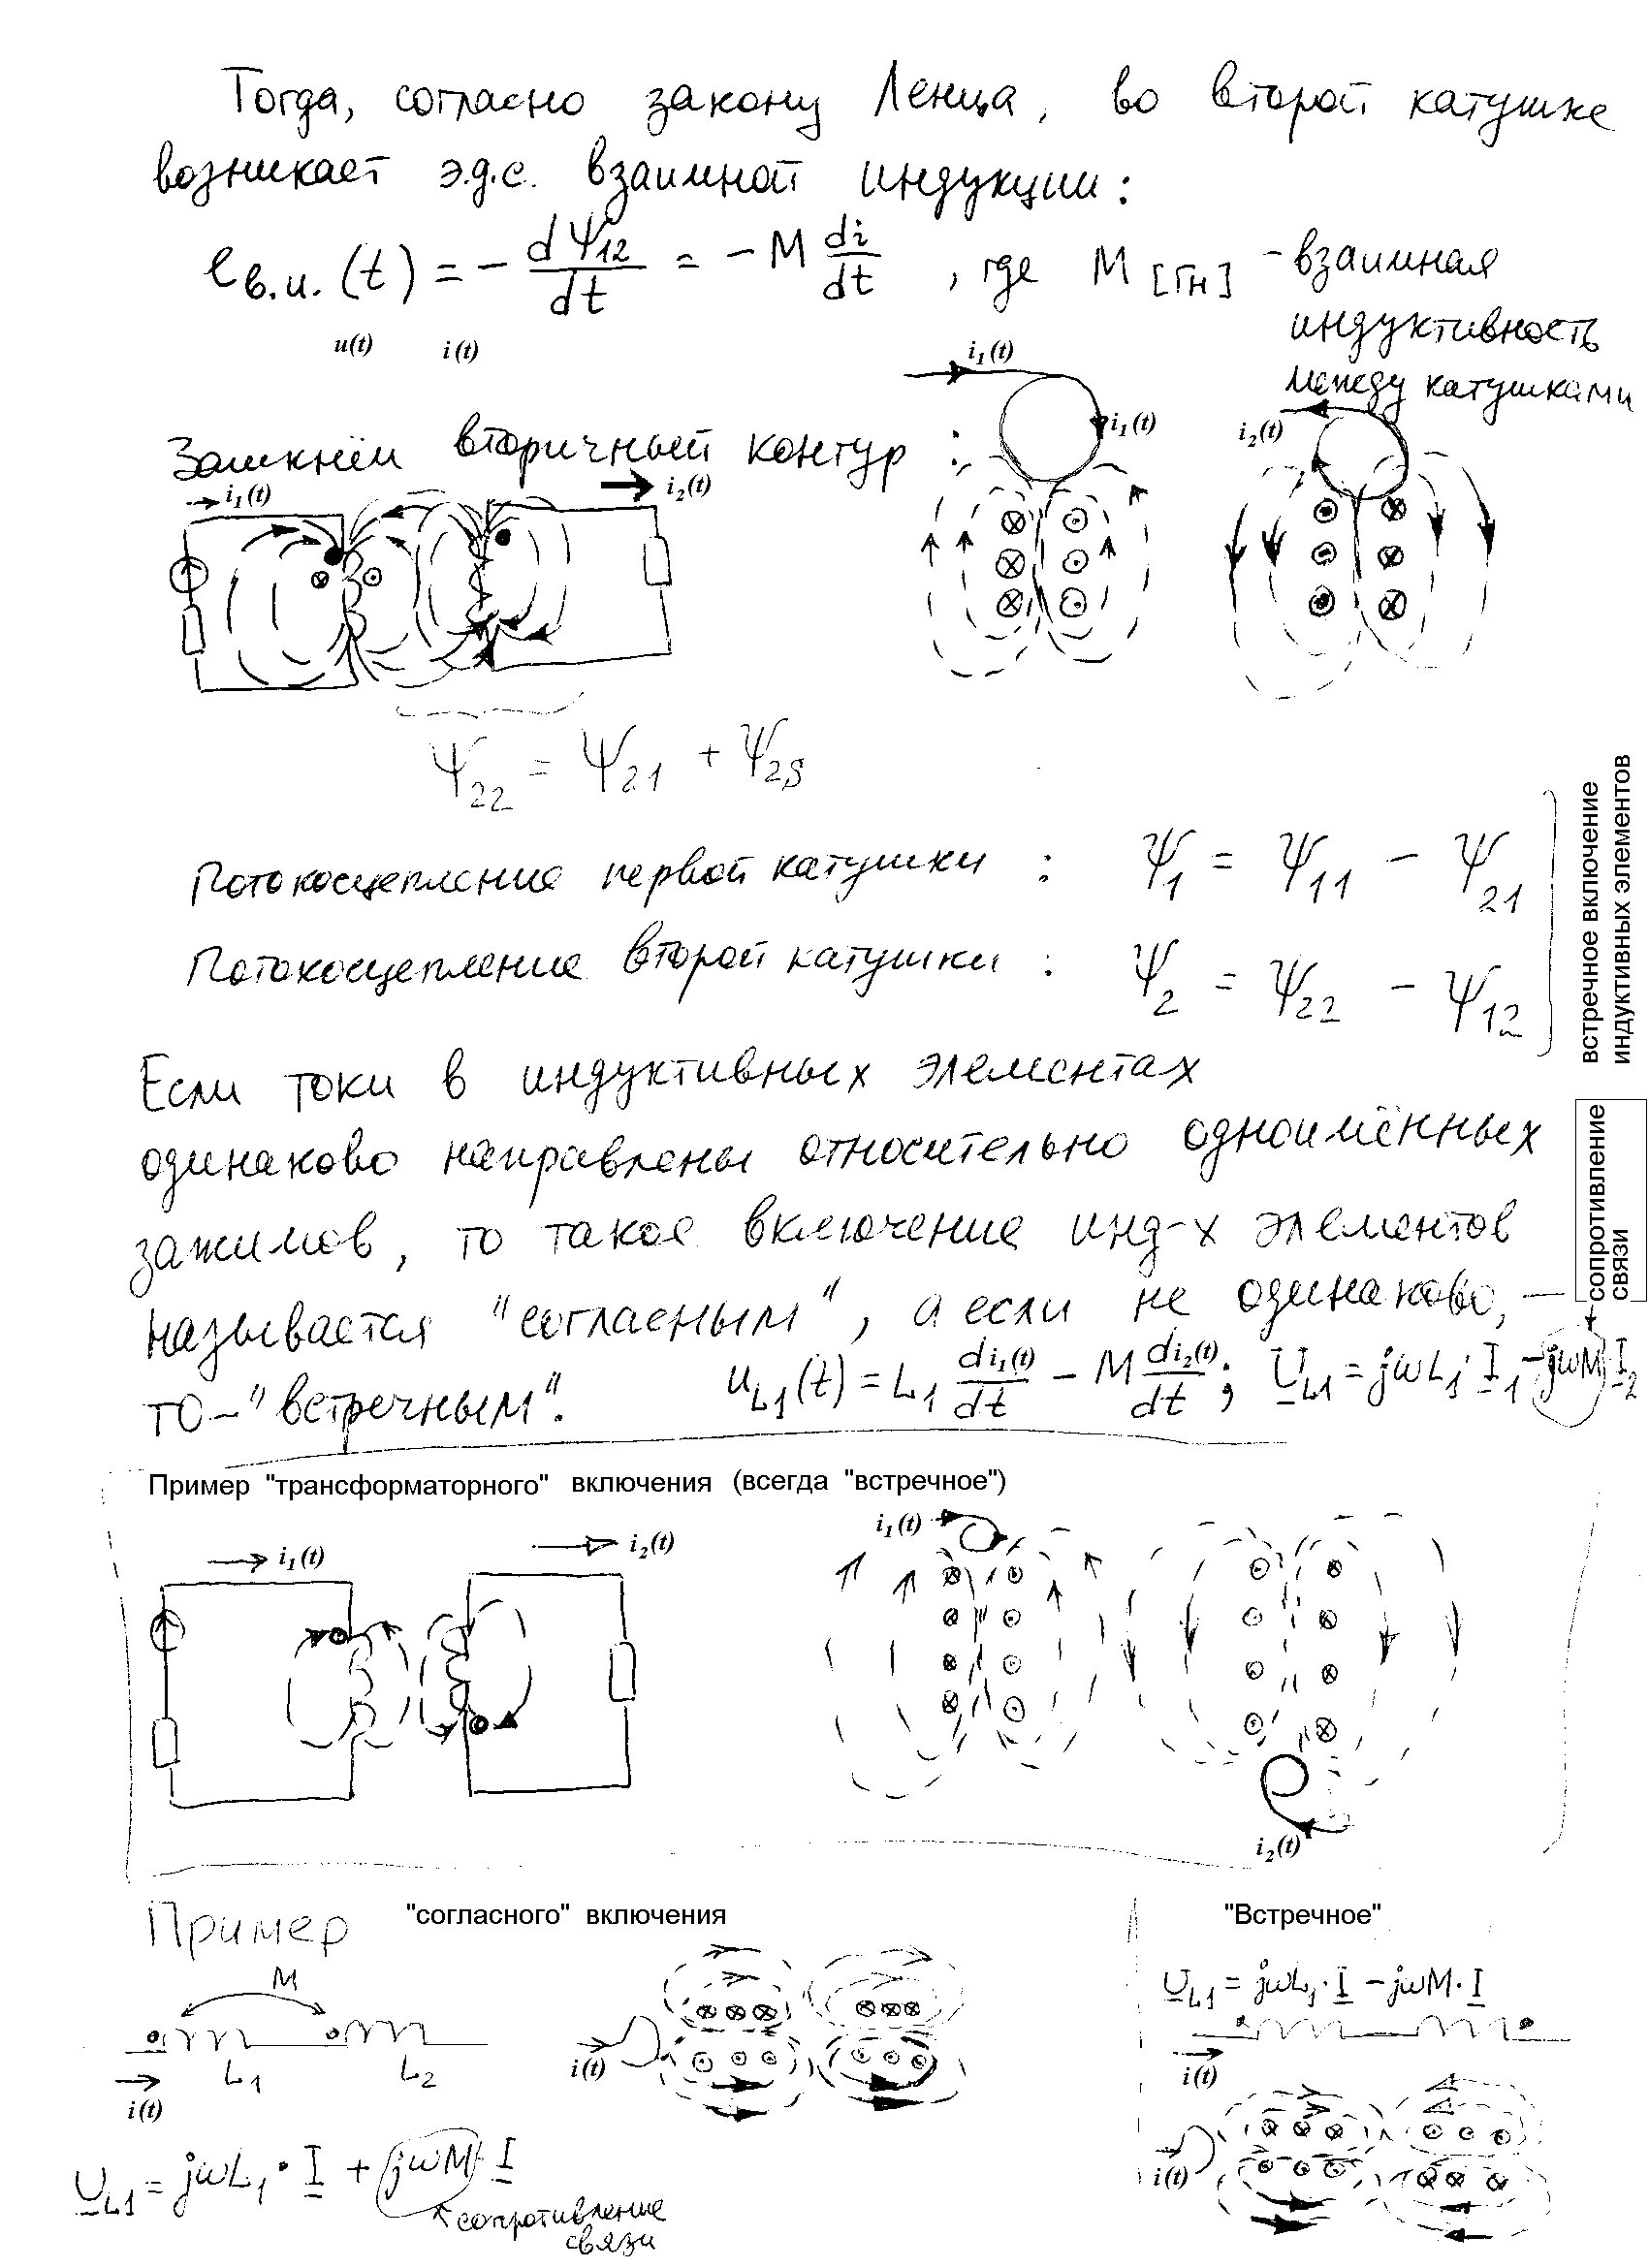 Тогда, согласно закону Ленца, во второй катушке
возникает э.д.с. взаимной индукции:
e_в.и. (t) = - dΨ₁₂/dt = - M di/dt , где M [Гн] - взаимная
индуктивность
между катушками
u(t) i(t)
i₁(t)
i₁(t)
i₂(t)
Замкнём вторичный контур :
i₁(t)
i₂(t)
Ψ₂₂ = Ψ₂₁ + Ψ₂S
Потокосцепление первой катушки : Ψ₁ = Ψ₁₁ - Ψ₂₁
Потокосцепление второй катушки : Ψ₂ = Ψ₂₂ - Ψ₁₂
встречное включение
индуктивных элементов
Если токи в индуктивных элементах
одинаково направлены относительно одноимённых
зажимов, то такое включение инд-х элементов
называется "согласным", а если не одинаково, —
то - "встречным".
сопротивление
связи
u_L1(t) = L₁ di₁(t)/dt - M di₂(t)/dt ; U_L1 = jωL₁·I₁ - jωM·I₂
Пример "трансформаторного" включения (всегда "встречное")
i₁(t)
i₂(t)
i₁(t)
i₂(t)
Пример "согласного" включения
M
L₁ L₂
i(t)
i(t)
U_L1 = jωL₁ · I + jωM·I
сопротивление
связи
"Встречное"
U_L1 = jωL₁·I - jωM·I
i(t)
i(t)